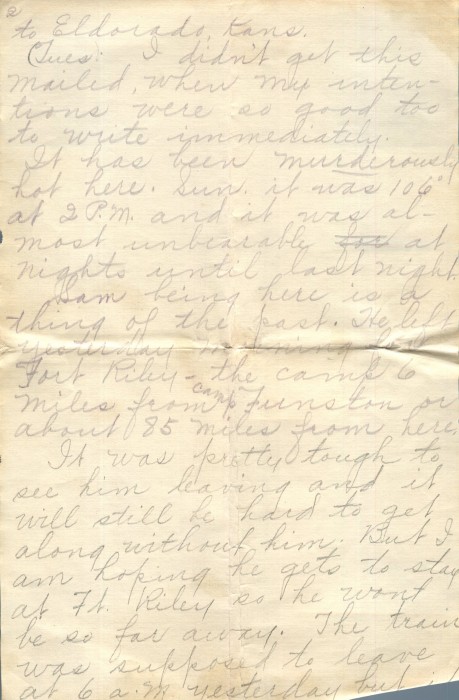 2
to Eldorado, Kans.
(Tues: I didn't get this
mailed, when my inten-
tions were so good too
to write immediately.
It has been murderously
hot here. Sun. it was 106°
at 2 P.M. and it was al-
most unbearable for at
nights until last night.
Sam being here is a
thing of the past. He left
yesterday morning for
Fort Riley - the camp 6
miles from camp Funston or
about 85 miles from here.
It was pretty tough to
see him leaving and it
will still be hard to get
along without him. But I
am hoping he gets to stay
at Ft. Riley so he wont
be so far away. The train
was supposed to leave
at 6 a.m yesterday but